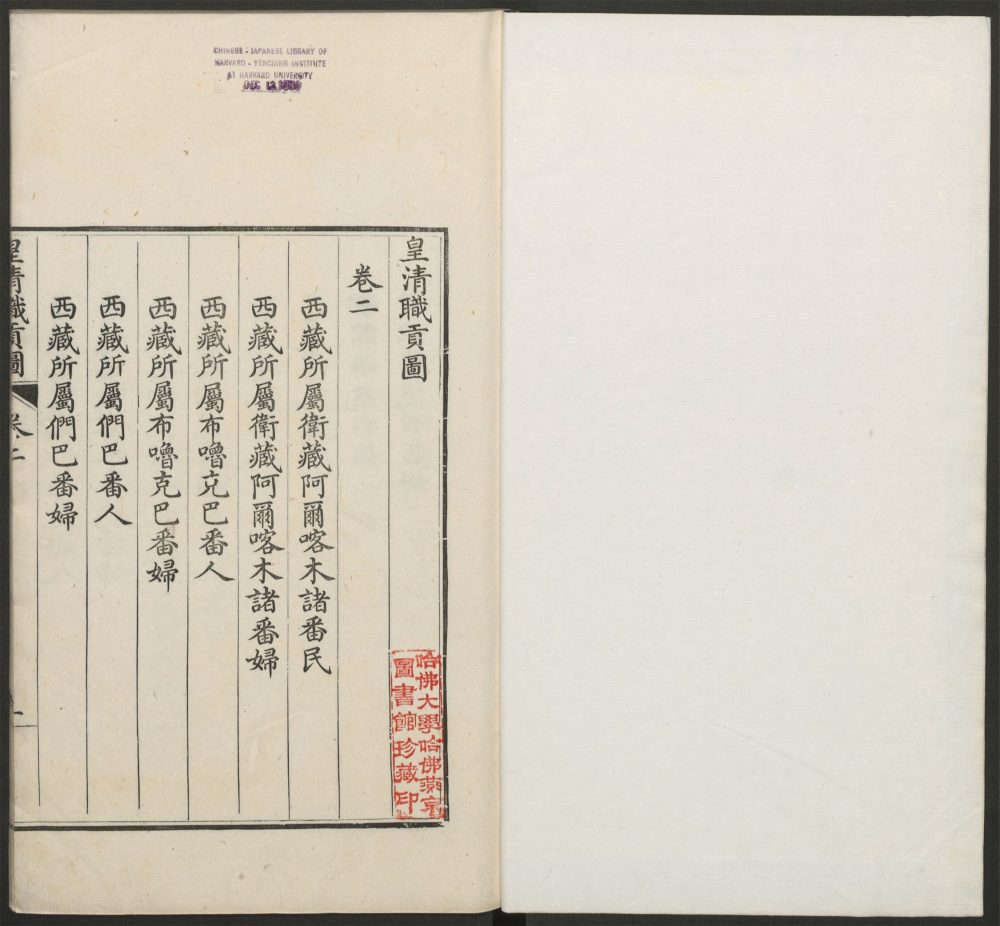 CHINESE - JAPANESE LIBRARY OF
HARVARD - YENCHING INSTITUTE
AT HARVARD UNIVERSITY
DEC
皇清職貢圖
卷二
西藏所屬衛藏阿爾喀木諸番民
西藏所屬衛藏阿爾喀木諸番婦
西藏所屬布嚕克巴番人
西藏所屬布嚕克巴番婦
西藏所屬們巴番人
西藏所屬們巴番婦
皇清職貢圖 卷二 一
哈佛大學哈佛燕京
圖書館珍藏印